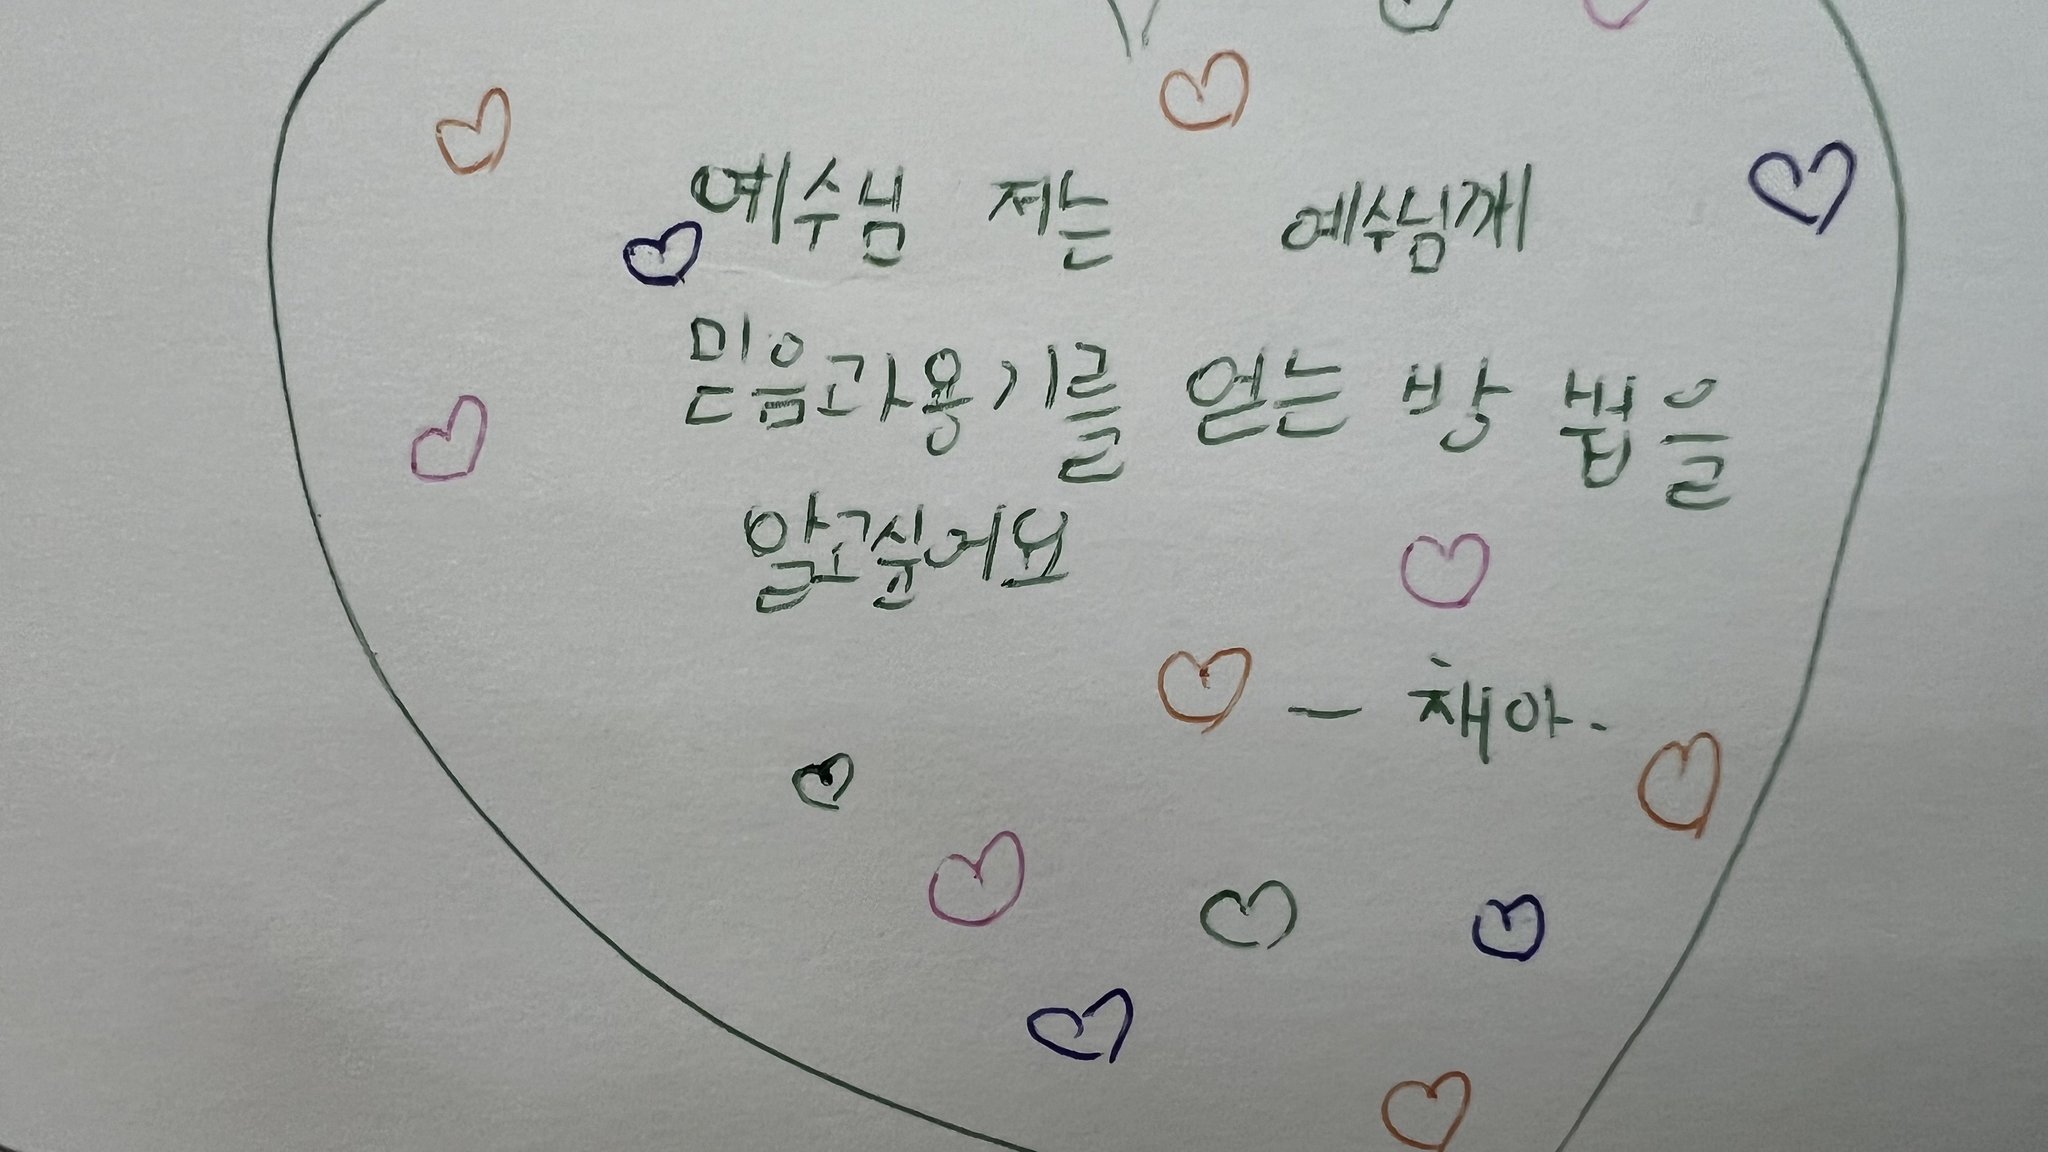 예수님 저는 예수님께
믿음과용기를 얻는 방 법을
알고싶어요
- 채아.